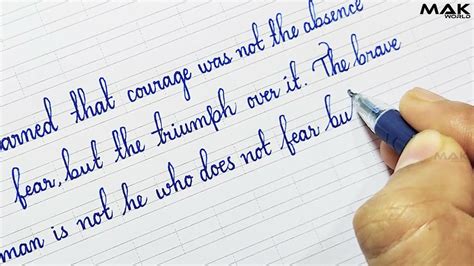 MAK
WORLD
arned that courage was not the absence
fear, but the triumph over it. The brave
man is not he who does not fear bu